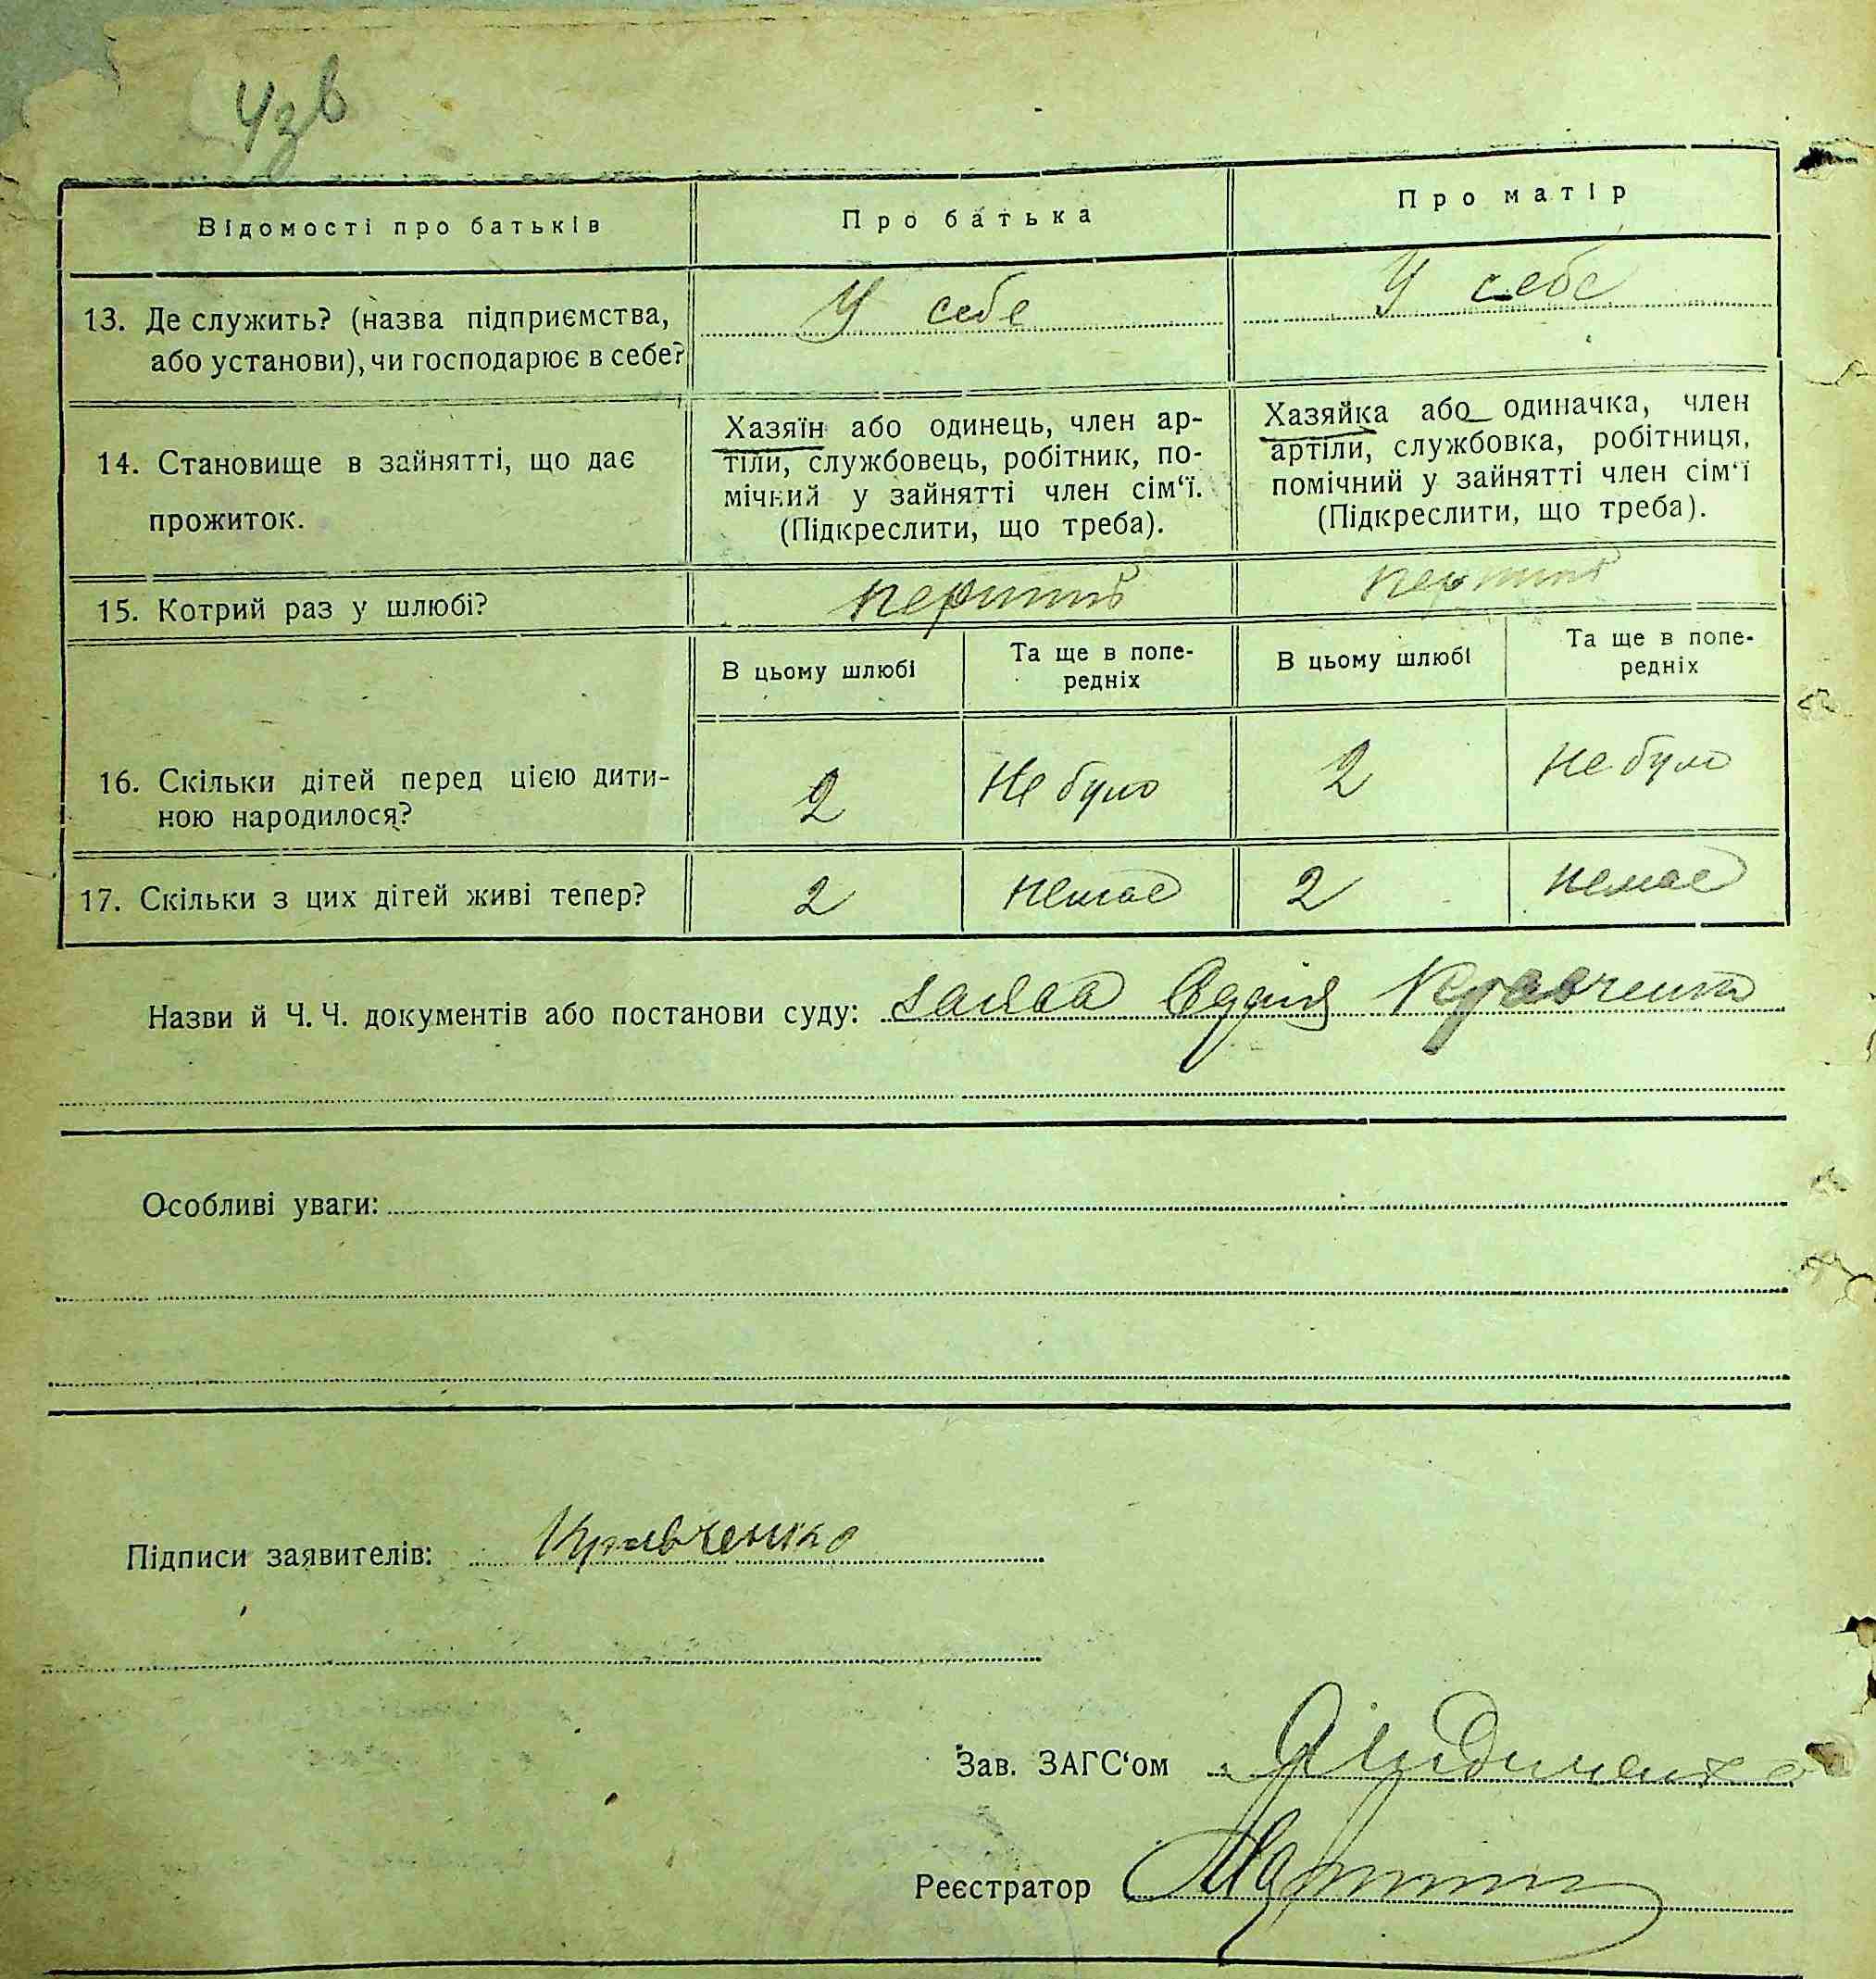 Відомості про батьків
Про батька
Про матір
13. Де служить? (назва підприємства,
або установи), чи господарює в себе?
У себе
У себе
14. Становище в зайнятті, що дає
прожиток.
Хазяїн або одинець, член ар-
тіли, службовець, робітник, по-
мічний у зайнятті член сім‘ї.
(Підкреслити, що треба).
Хазяйка або одиначка, член
артіли, службовка, робітниця,
помічний у зайнятті член сім‘ї
(Підкреслити, що треба).
15. Котрий раз у шлюбі?
перший
перший
В цьому шлюбі
Та ще в попе-
редніх
В цьому шлюбі
Та ще в попе-
редніх
16. Скільки дітей перед цією дити-
ною народилося?
2
Не було
2
Не було
17. Скільки з цих дітей живі тепер?
2
немає
2
немає
Назви й Ч. Ч. документів або постанови суду: заява Кравченко
Особливі уваги:
Підписи заявителів: Кравченко
Зав. ЗАГС‘ом
Реєстратор